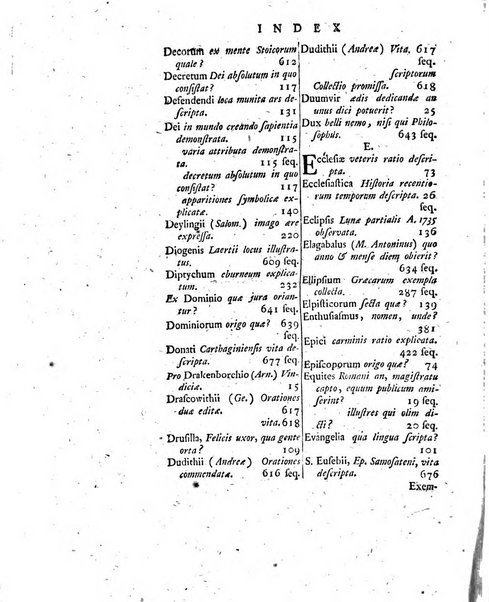 INDEX
Decorum ex mente Stoicorum
quale? 612
Decretum Dei absolutum in quo
consistat? 117
Defendendi loca munita ars de-
scripta. 131
Dei in mundo creando sapientia
demonstrata. 115
varia attributa demonstra-
ta. 115 seq.
decretum absolutum in quo
consistat? 117
apparitiones symbolicæ ex-
plicatæ. 140
Deylingii (Salom.) imago ære
expressa. 220
Diogenis Laertii locus illustra-
tus. 609 seq.
Diptychum eburneum explica-
tum. 232
Ex Dominio quæ jura orian-
tur? 641 seq.
Dominiorum origo quæ? 639
seq.
Donati Carthaginiensis vita de-
scripta. 677 seq.
Pro Drakenborchio (Arn.) Vin-
diciæ. 15
Drascowithii (Ge.) Orationes
duæ editæ. 617
vita. 618
Drusilla, Felicis uxor, qua gente
orta? 109
Dudithii (Andreæ) Orationes
commendatæ. 616 seq.
Dudithii (Andreæ) Vita. 617
seq.
scriptorum
Collectio promissa. 618
Duumvir ædis dedicandæ an
unus dici potuerit? 25
Dux belli nemo, nisi qui Philo-
sophus. 643 seq.
E.
Ecclesiæ veteris ratio descri-
pta. 73
Ecclesiastica Historia recentio-
rum temporum descripta. 26
seq.
Eclipsis Lunæ partialis A. 1735
observata. 136
Elagabalus (M. Antoninus) quo
anno & mense diem obierit?
634 seq.
Ellipsium Græcarum exempla
collecta. 287 seq.
Elpisticorum secta quæ? 139
Enthusiasmus, nomen, unde?
381
Epici carminis ratio explicata.
422 seq.
Episcoporum origo quæ? 74
Equites Romani an, magistratu
capto, equum publicum ami-
serint? 19 seq.
illustres qui olim di-
cti? 20 seq.
Evangelia qua lingua scripta?
101
S. Eusebii, Ep. Samosateni, vita
descripta. 676
Exem-